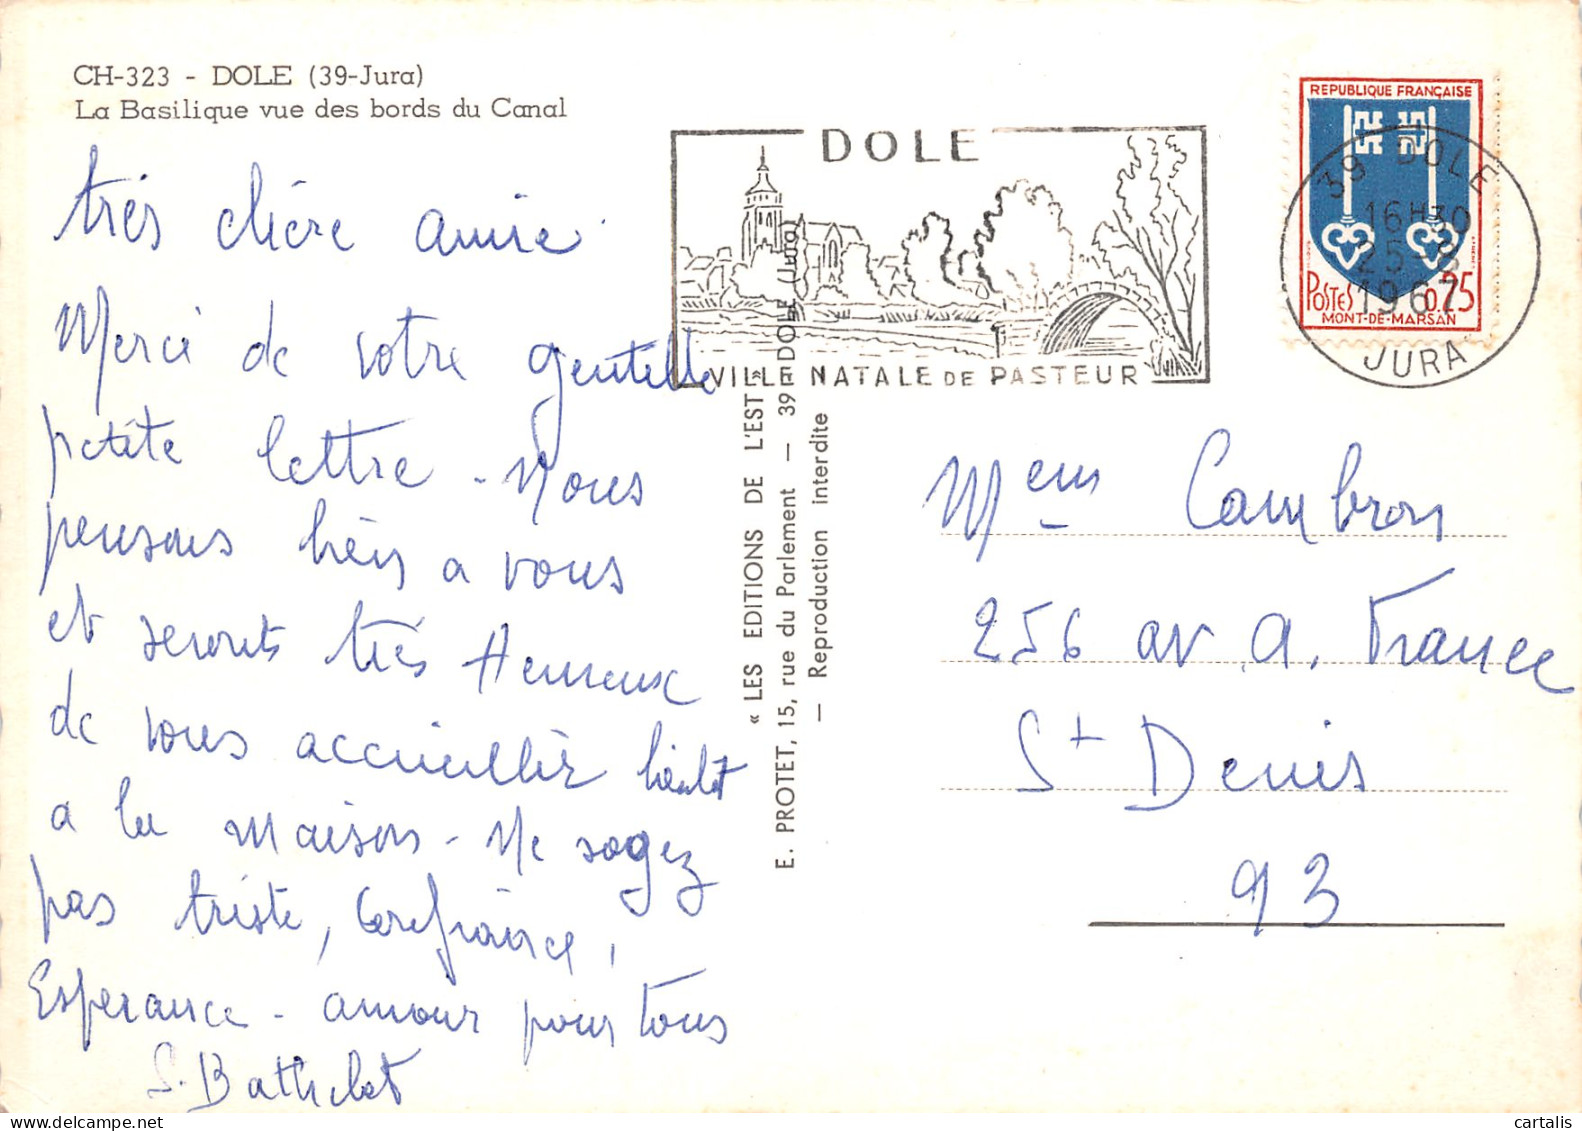 CH-323 - DOLE (39-Jura)
La Basilique vue des bords du Canal
très chère amie
Merci de votre gentille
petite lettre - Nous
pensons bien a vous
et serons très Heureux
de vous accueillir bientôt
a la maison - Ne soyez
pas triste, Confiance,
Espérance - amour pour tous
S. Bathelet
« LES EDITIONS DE L'EST »
E. PROTET, 15, rue du Parlement — 39 DOLE (Jura)
— Reproduction interdite
DOLE
VILLE NATALE DE PASTEUR
REPUBLIQUE FRANÇAISE
POSTES 0,25
MONT-DE-MARSAN
39 DOLE
16H30
25-8
1967
JURA
Cambron
256 av A. France
St Denis
93
cartalis